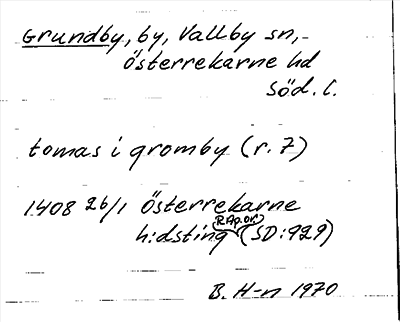 Grundby, by, Vallby sn,
Österrekarne hd
Söd. l.
tomas i gromby (r. 7)
1408 26/1 Österrekarne
RAp. or.
h:dsting (SD:929)
B. H-n 1970